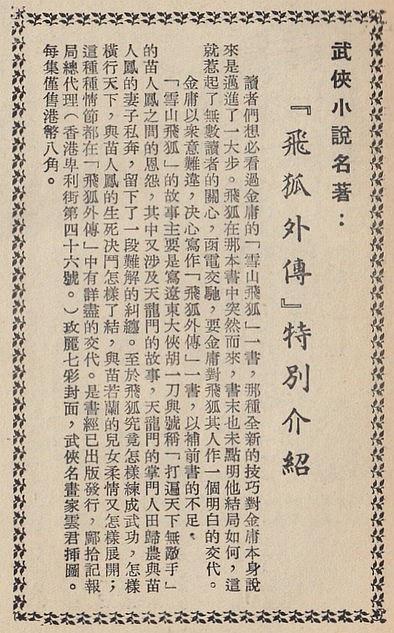 武俠小說名著：
『飛狐外傳』特別介紹
讀者們想必看過金庸的「雪山飛狐」一書，那種全新的技巧對金庸本身說
來是邁進了一大步。飛狐在那本書中突然而來，書末也未點明他結局如何，這
就惹起了無數讀者的關心，函電交馳，要金庸對飛狐其人作一個明白的交代。
金庸以衆意難違，決心寫作「飛狐外傳」一書，以補前書的不足。
「雪山飛狐」的故事主要是寫遼東大俠胡一刀與號稱「打遍天下無敵手」
的苗人鳳之間的恩怨，其中又涉及天龍門的故事，天龍門的掌門人田歸農與苗
人鳳的妻子私奔，留下了一段難解的糾纏。至於飛狐究竟怎樣練成武功，怎樣
橫行天下，與苗人鳳的生死決鬥怎樣了結，與苗若蘭的兒女柔情又怎樣展開；
這種種情節都在「飛狐外傳」中有詳盡的交代。是書經已出版發行，鄺拾記報
局總代理（香港卑利街第四十六號。）玫麗七彩封面，武俠名畫家雲君揷圖。
每集僅售港幣八角。